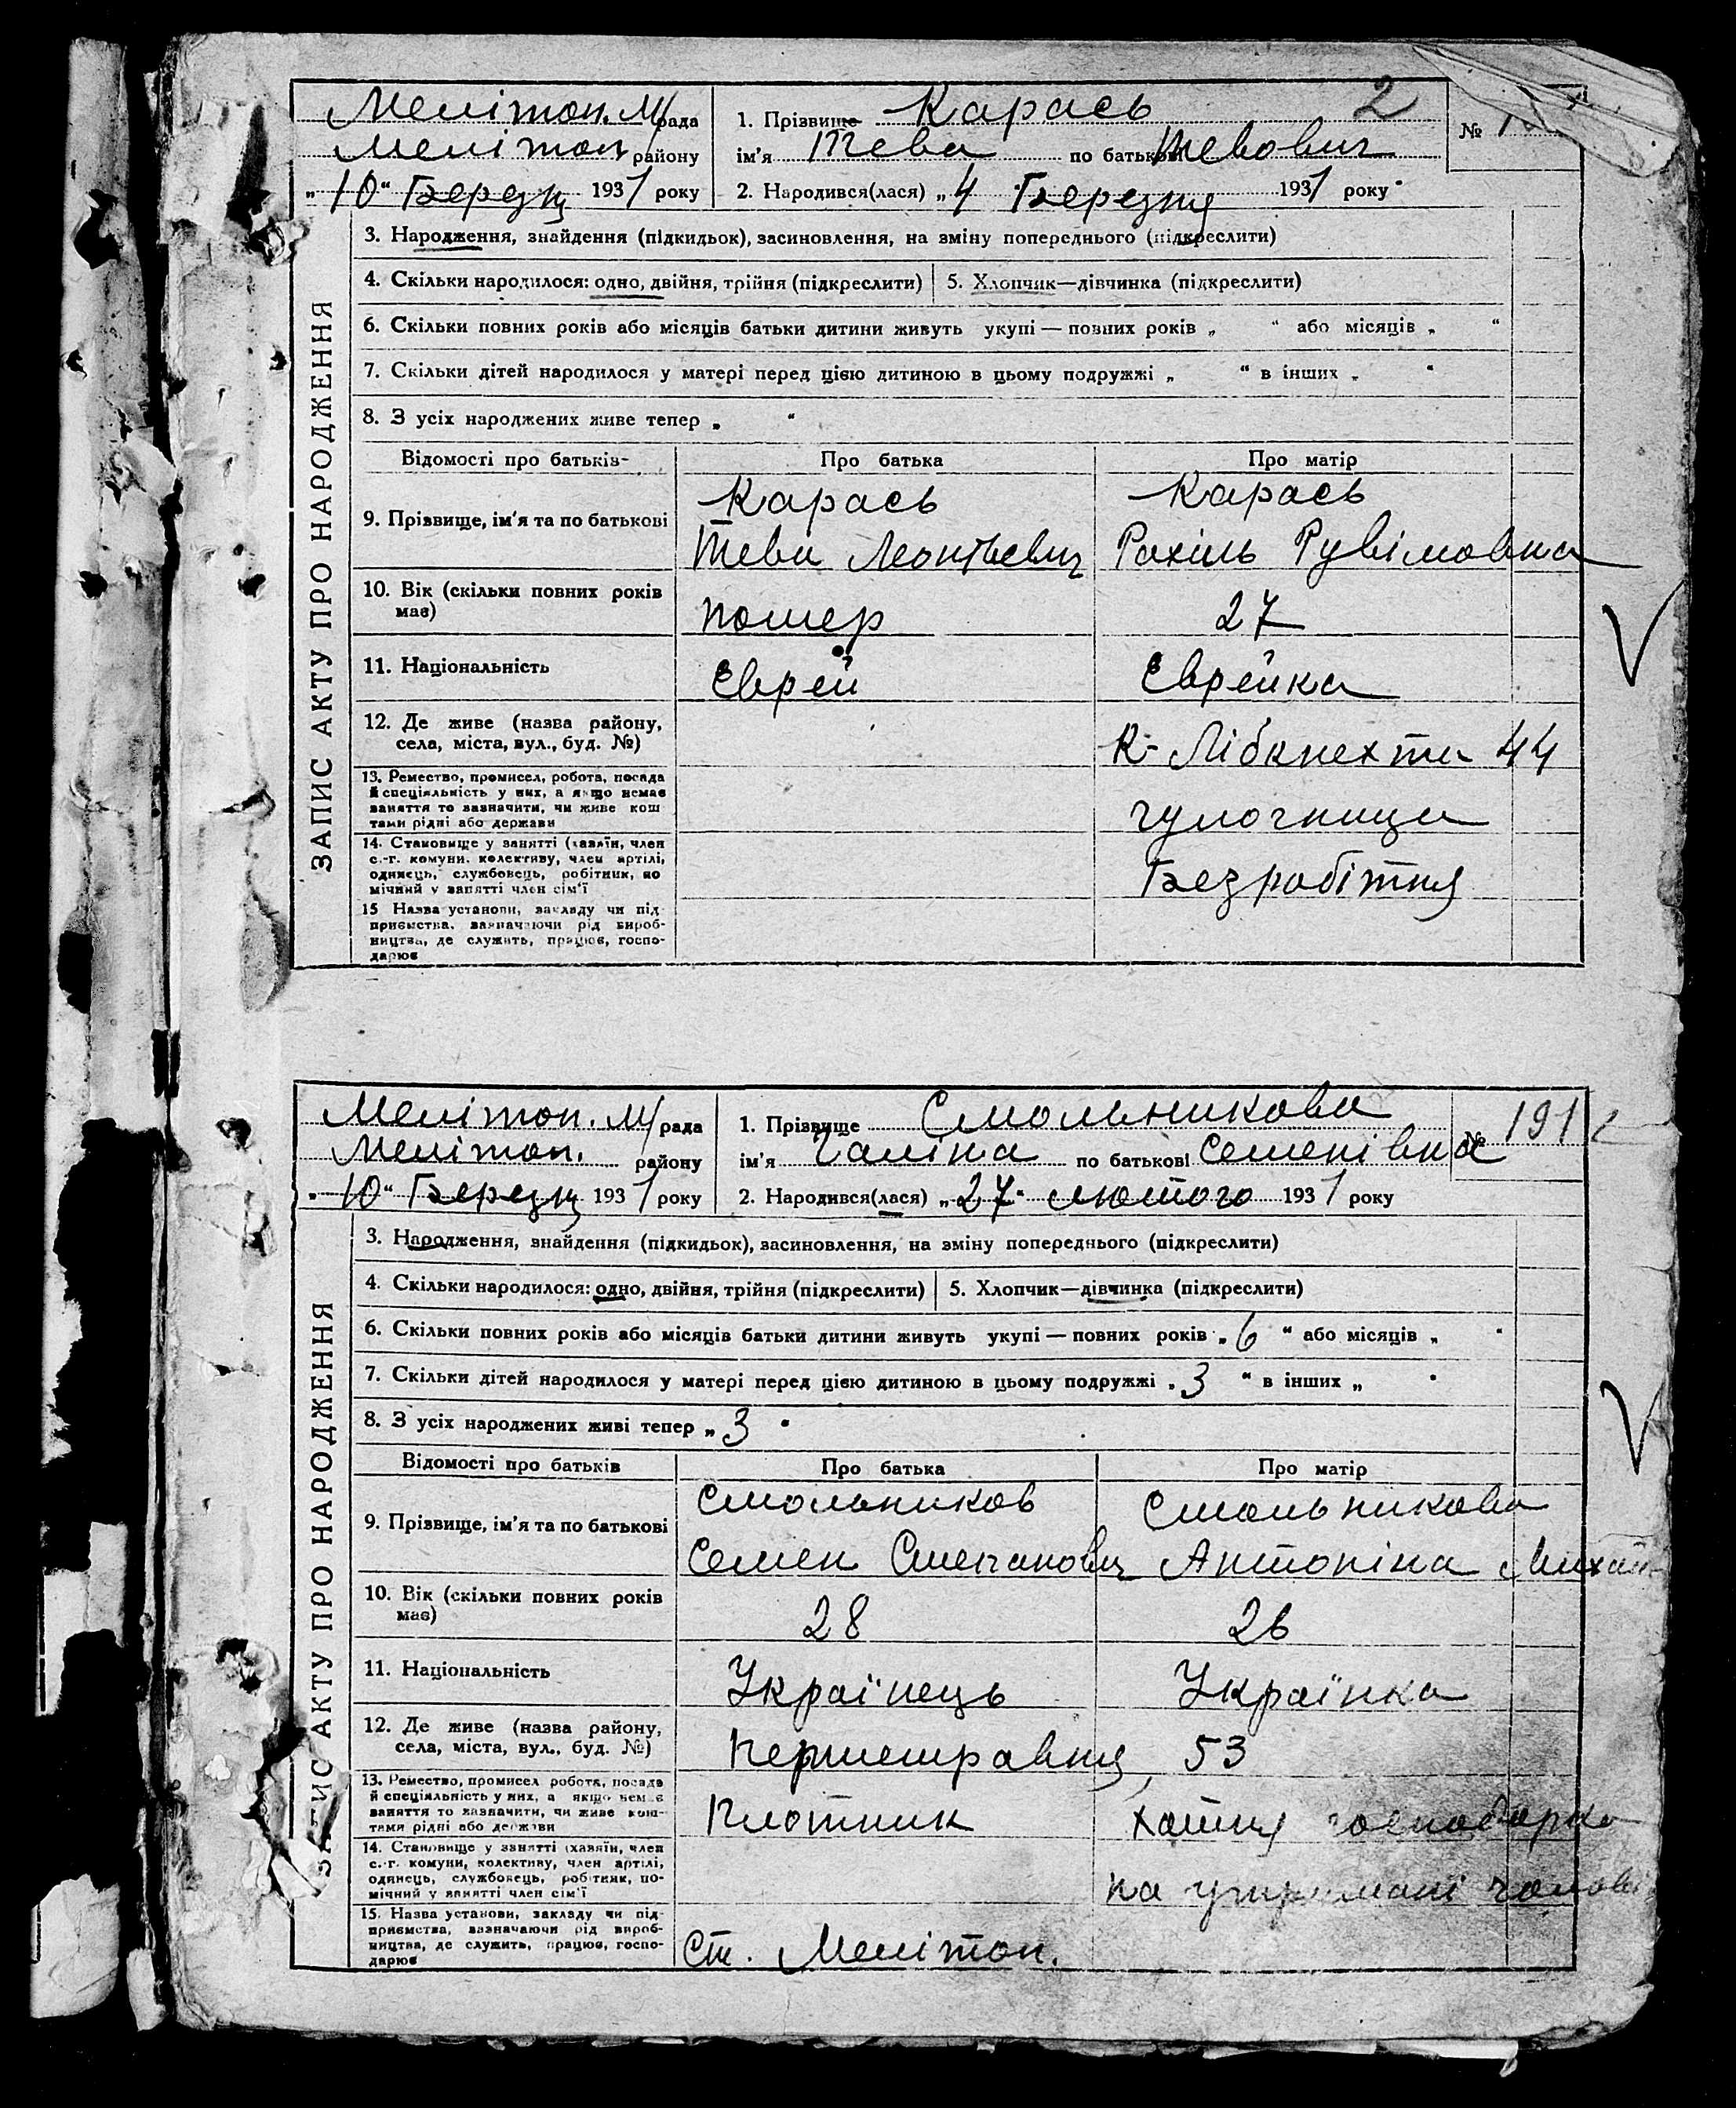 Мелітоп. М/рада
1. Прізвище Карась 2
№
Мелітоп. району
ім'я Тева по батькові Тевович
„10“ Березня 1931 року
2. Народився(лася) „4 Березня 1931 року
ЗАПИС АКТУ ПРО НАРОДЖЕННЯ
3. Народження, знайдення (підкидьок), засиновлення, на зміну попереднього (підкреслити)
4. Скільки народилося: одно, двійня, трійня (підкреслити)
5. Хлопчик—дівчинка (підкреслити)
6. Скільки повних років або місяців батьки дитини живуть укупі — повних років „ “ або місяців „ “
7. Скільки дітей народилося у матері перед цією дитиною в цьому подружжі „ “ в інших „ “
8. З усіх народжених живе тепер „ “
Відомості про батьків
Про батька
Про матір
9. Прізвище, ім'я та по батькові
Карась
Тева Леонтьевич
Карась
Рахіль Рувімовна
10. Вік (скільки повних років
має)
помер
27
11. Національність
Єврей
Єврейка
12. Де живе (назва району,
села, міста, вул., буд. №)
К-Лібкнехта 44
13. Ремество, промисел, робота, посада
й спеціяльність у них, а якщо немає
заняття то зазначити, чи живе кош
тами рідні або держави
чулочница
14. Становище у занятті (хазяїн, член
с.-г. комуни, колективу, член артілі,
одинець, службовець, робітник, по
мічний у занятті член сім'ї
Безробітня
15 Назва установи, закладу чи під
приємства, зазначаючи рід вироб-
ництва, де служить, працює, госпо-
дарює
Мелітоп. М/рада
1. Прізвище Смольникова
№ 191
Мелітоп. району
ім'я Галіна по батькові Семенівна
„10“ Березня 1931 року
2. Народився(лася) „27“ лютого 1931 року
ЗАПИС АКТУ ПРО НАРОДЖЕННЯ
3. Народження, знайдення (підкидьок), засиновлення, на зміну попереднього (підкреслити)
4. Скільки народилося: одно, двійня, трійня (підкреслити)
5. Хлопчик—дівчинка (підкреслити)
6. Скільки повних років або місяців батьки дитини живуть укупі — повних років „6“ або місяців „ “
7. Скільки дітей народилося у матері перед цією дитиною в цьому подружжі „3 “ в інших „ “
8. З усіх народжених живі тепер „3 “
Відомості про батьків
Про батька
Про матір
9. Прізвище, ім'я та по батькові
Смольников
Семен Степанович
Смольникова
Антоніна Михай-
10. Вік (скільки повних років
має)
28
26
11. Національність
Українець
Українка
12. Де живе (назва району,
села, міста, вул., буд. №)
53
13. Ремество, промисел робота, посада
й спеціяльність у них, а якщо немає
заняття то зазначити, чи живе кош-
тами рідні або держави
Плотник
хатня господарка
14. Становище у занятті (хазяїн, член
с.-г. комуни, колективу, член артілі,
одинець, службовець, робітник, по-
мічний у занятті член сім'ї
на утримані чолові
15. Назва установи, закладу чи під
приємства, зазначаючи рід вироб-
ництва, де служить, працює, госпо-
дарює
Ст. Мелітоп.